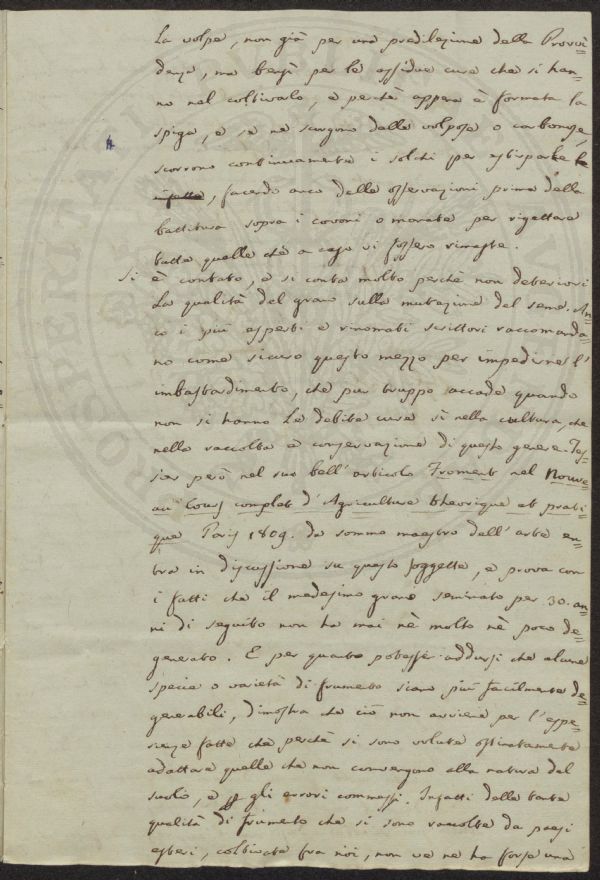 La volpe, non già per una predilezione della Provvi=
denza, ma bensì per le assidue cure che si han=
no nel coltivarlo, e perchè appena è formata la
spiga, e se ne scorgono delle volpose o carbonose,
scorrono continuamente i solchi per estirparle
infette, facendo anco delle osservazioni prima della
battitura sopra i covoni o manate per rigettare
tutte quelle che a caso vi fossero rimaste.
Si è contato, e si conta molto perchè non deteriori
la qualità del grano sulla mutazione del seme. An
co i più esperti e rinomati scrittori raccomanda=
no come sicuro questo mezzo per impedirne l'
imbastardimento, che pur truppo accade quando
non si hanno le debite cure sì nella cultura, che
nella raccolta e conservazione di questo genere. Tes=
sier però nel suo bell'articolo Froment nel Nouve=
au Cours complet d'Agriculture theorique et prati=
que Paris 1809. da sommo maestro dell'arte en=
tra in discussione su questo soggetto, e prova con
i fatti che il medesimo grano seminato per 30. an=
ni di seguito non ha mai nè molto nè poco de=
generato. E per quanto potesse addursi che alcune
specie o varietà di frumento siano più facilmente de=
generabili, dimostra che ciò non avviene per l'espe=
rienze fatte che perchè si sono volute ostinatamente
adattare quelle che non convengono alla natura del
suolo, e gli errori commessi. Infatti delle tante
qualità di frumento che si sono raccolte da paesi
esteri, coltivate fra noi, non ve ne ha forse una